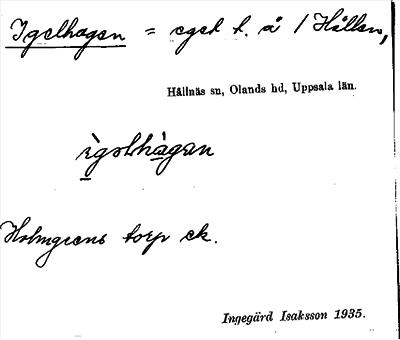 Igelhagen = eget t. å 1 Hållen,
Hållnäs sn, Olands hd, Uppsala län.
ìgəlhàgan
Holmgrens torp ek.
Ingegärd Isaksson 1935.